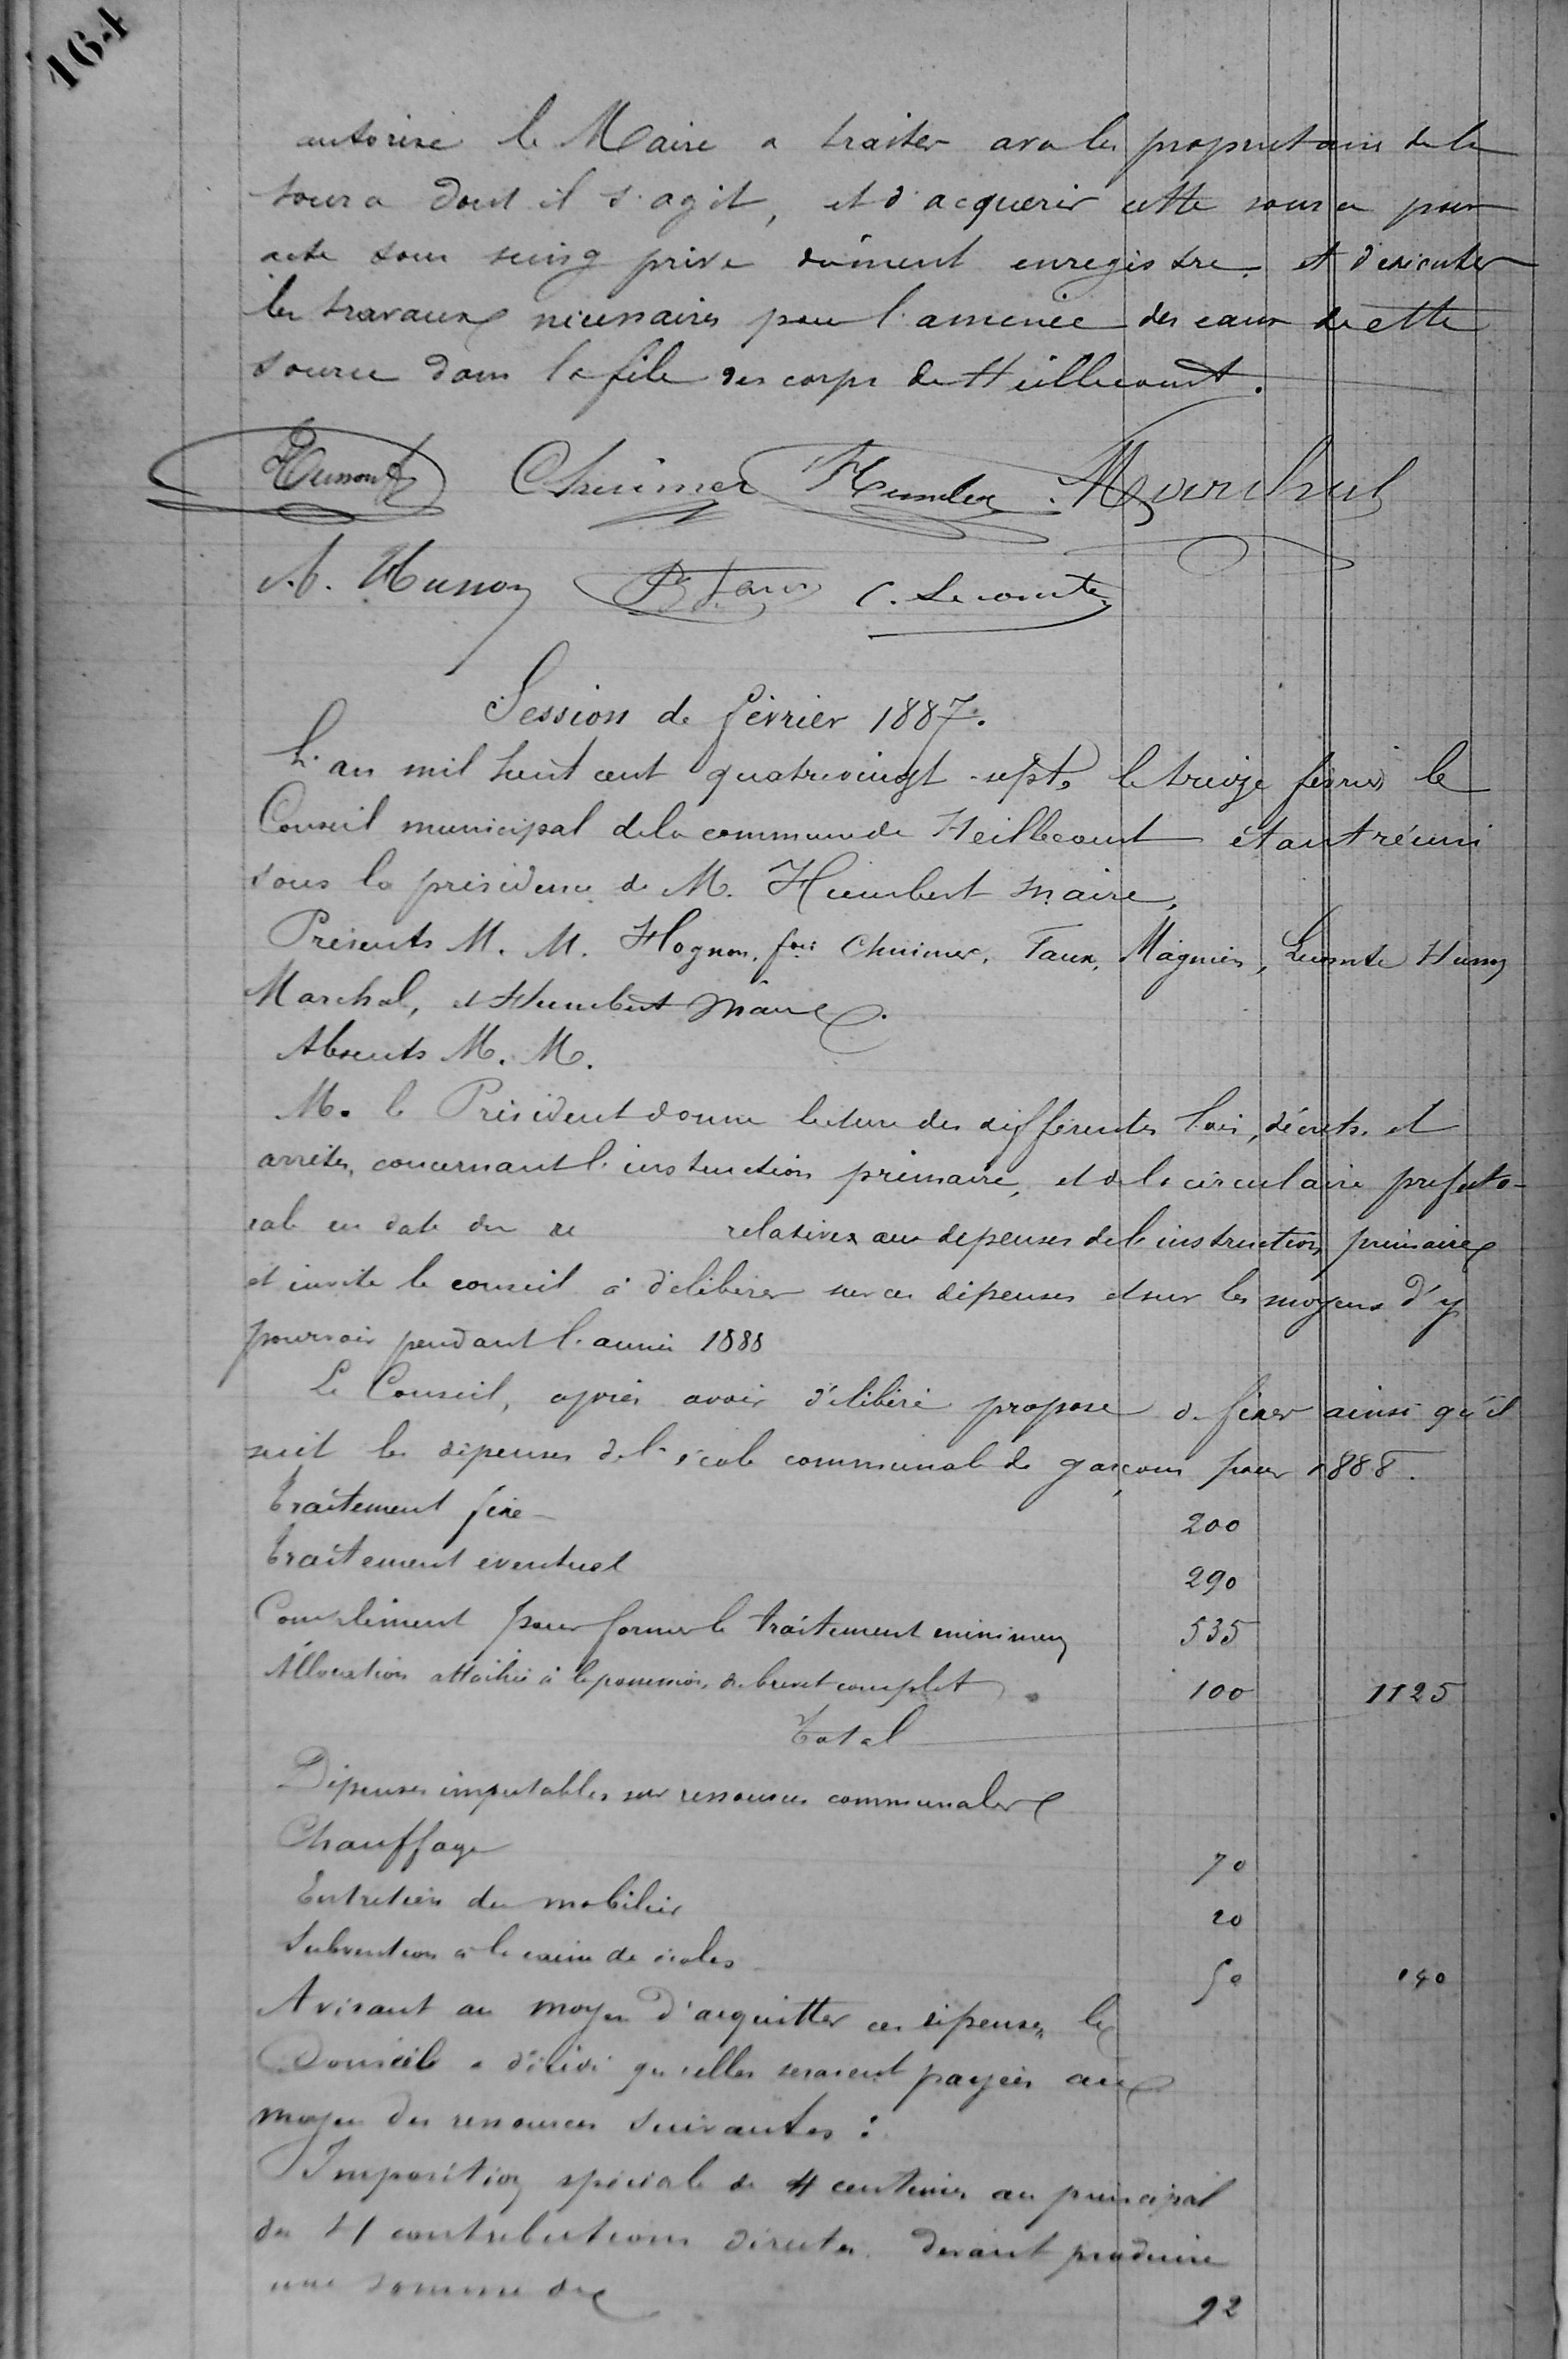 164
autorise le Maire a traiter avec les proprietaires de la
source dont il s'agit, et d'acquerir cette source par
acte sous seing privé dûment enregistré et d'exécuter
les travaux nécessaires pour l'amenée des eaux de cette
source dans la file des corps de Heillecourt.
Chuimer Humbert Marchal
A. Husson P. Faux C. Lecomte
Session de février 1887.
L'an mil huit cent quatrevingt-sept, le treize février le
Conseil municipal de la commune de Heillecourt étant réuni
sous la présidence de M. Humbert maire,
Présents M. M. Hognon, fois Chuimer, Faux, Magnien, Lecomte Husson
Marchal, et Humbert Maire.
Absents M. M.
M. le Président donne lecture des différentes lois, décrets et
arrêtés, concernant l'instruction primaire, et de la circulaire préfecto-
rale en date du relatives aux dépenses de l'instruction primaire
et invite le conseil à délibérer sur ces dépenses et sur les moyens d'y
pourvoir pendant l'année 1888
Le Conseil, après avoir délibéré propose de fixer ainsi qu'il
suit les dépenses de l'école communale de garçons pour 1888.
Traitement fixe 200
Traitement eventuel 290
Complément pour former le traitement minimum 535
Allocation attachée à la possession du brevet complet 100 1125
Total
Dépenses imputables sur ressources communales
Chauffage 70
Entretien du mobilier 20
Subvention à la caisse de écoles 50 140
Avisant au moyen d'acquitter ces dépenses, le
Conseil a décidé qu'elles seraient payées au
moyen des ressources suivantes :
Imposition spéciale de 4 centimes au principal
des 4 contributions directes devant produire
une somme de 92